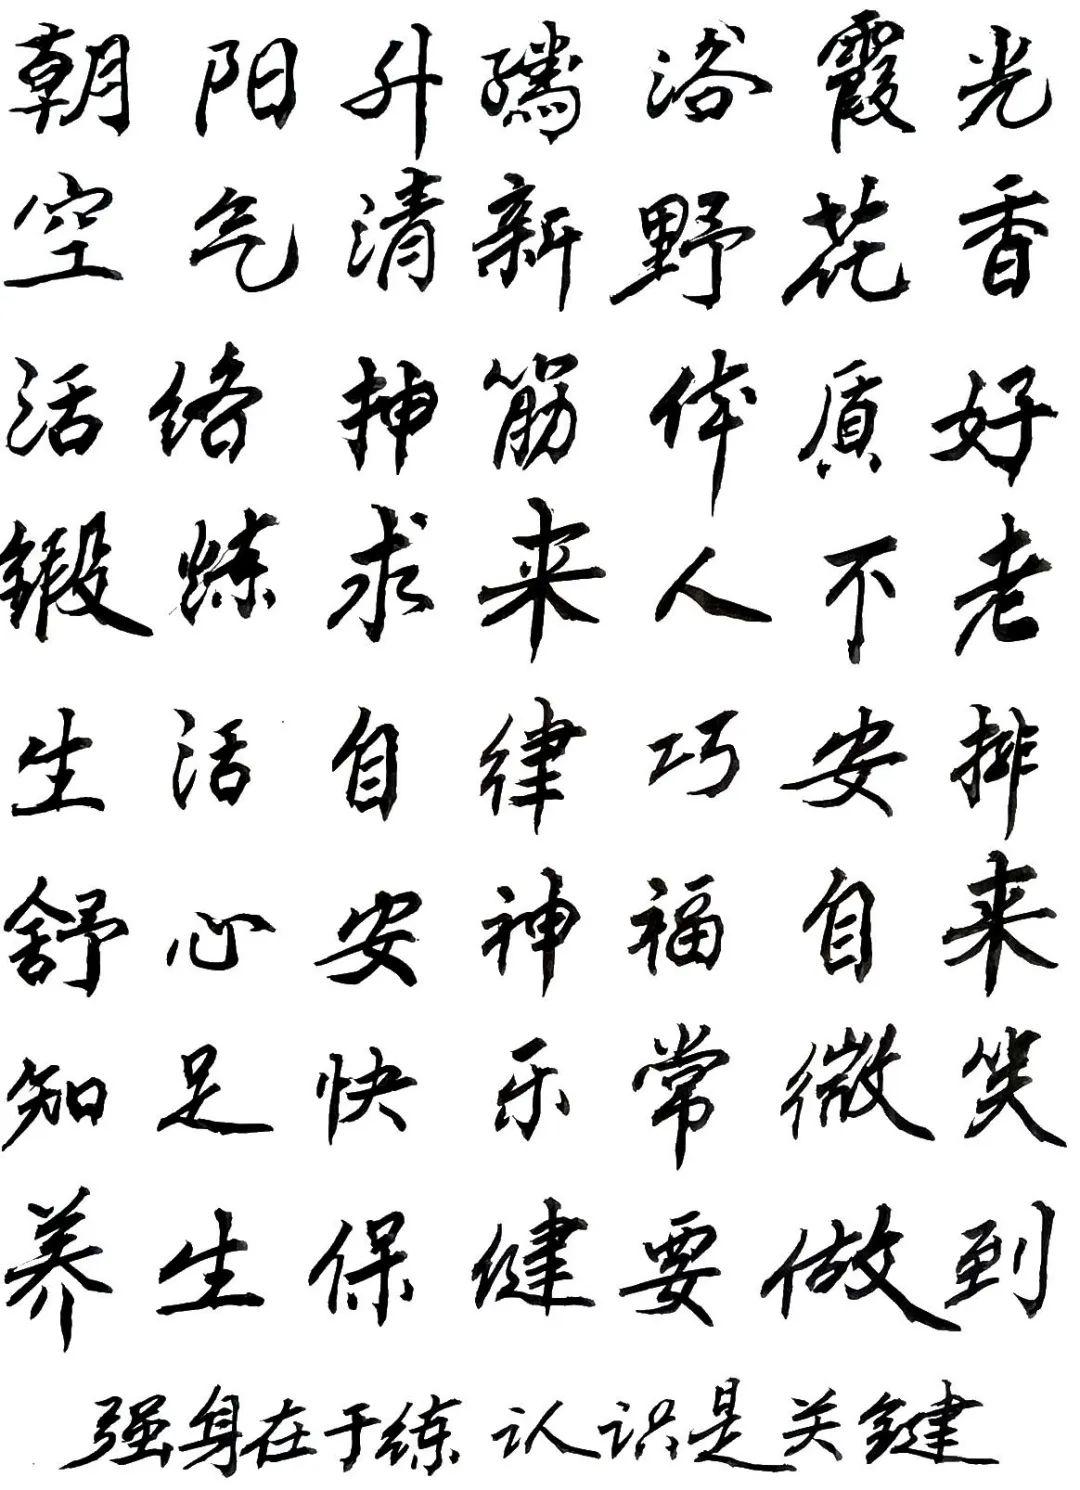 朝阳升腾浴霞光
空气清新野花香
活络抻筋体质好
锻炼求来人不老
生活自律巧安排
舒心安神福自来
知足快乐常微笑
养生保健要做到
强身在于练 认识是关键